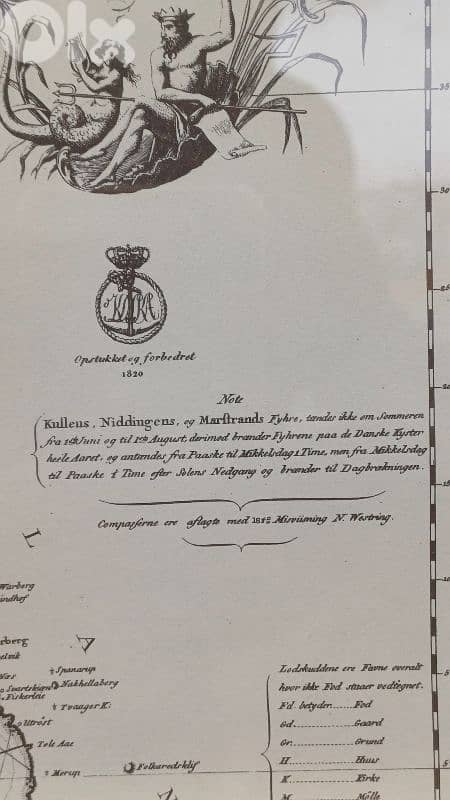 olx
35
30
25
Opstukket og forbedret
1820
Note
20
Kullens, Niddingens, og Marstrands Fyhre, tændes ikke om Sommeren
fra 1ste Juni og til 1ste August, derimod brænder Fyhrene paa de Danske Kyster
heele Aaret, og antændes fra Paaske til Mikkelsdag 1 Time, men fra Mikkelsdag
til Paaske ½ Time efter Solens Nedgang og brænder til Dagbrækningen.
15
Compasserne ere aflagte med 18¼° Misviisning N. Westring.
L
10
Warberg
indhof
A
Lodskuddene ere Favne overalt
hvor ikke Fod staaer vedtegnet.
Spanarup
5
Nakhellaberg
Svartskjær
Fiskerleie
Fd. betyder Fod
Tvaager K:
Gd. Gaard
Utröst
Gr. Grund
Tole Aae
H. Huus
Folkaredsklif
5
Morup
K Kirke
M Mölle